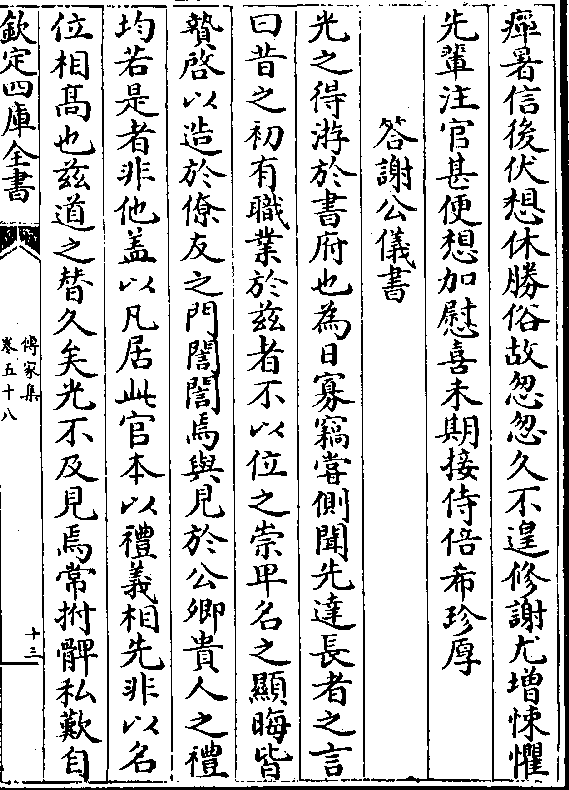 瘴暑信後伏想休勝俗故忽忽久不遑修謝尤增悚懼
先輩注官甚便想加慰喜未期接侍倍希珍厚
答謝公儀書
光之得游於書府也為日寡竊嘗側聞先達長者之言
曰昔之初有職業於兹者不以位之崇卑名之顯晦皆
贄啓以造於僚友之門誾誾焉與見於公卿貴人之禮
均若是者非他盖以凡居此官本以禮義相先非以名
位相髙也兹道之替久矣光不及見焉常拊髀私歎自
欽定四庫全書
傳家集
卷五十八
十三